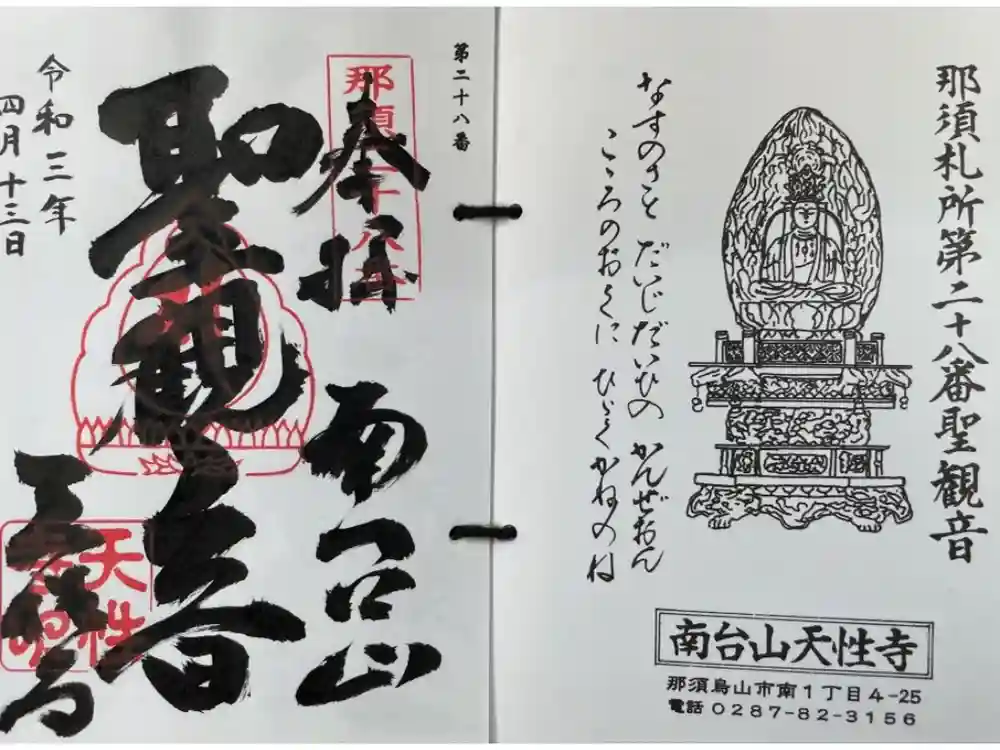 那須札所第二十八番聖観音
なすのさと だいじだいひの かんぜおん
こころのおくに ひらくかねのね
南台山天性寺
那須烏山市南1丁目4-25
電話 0287-82-3156
第二十八番
奉拝
南台山
聖観音
天性寺
令和三年
四月十三日